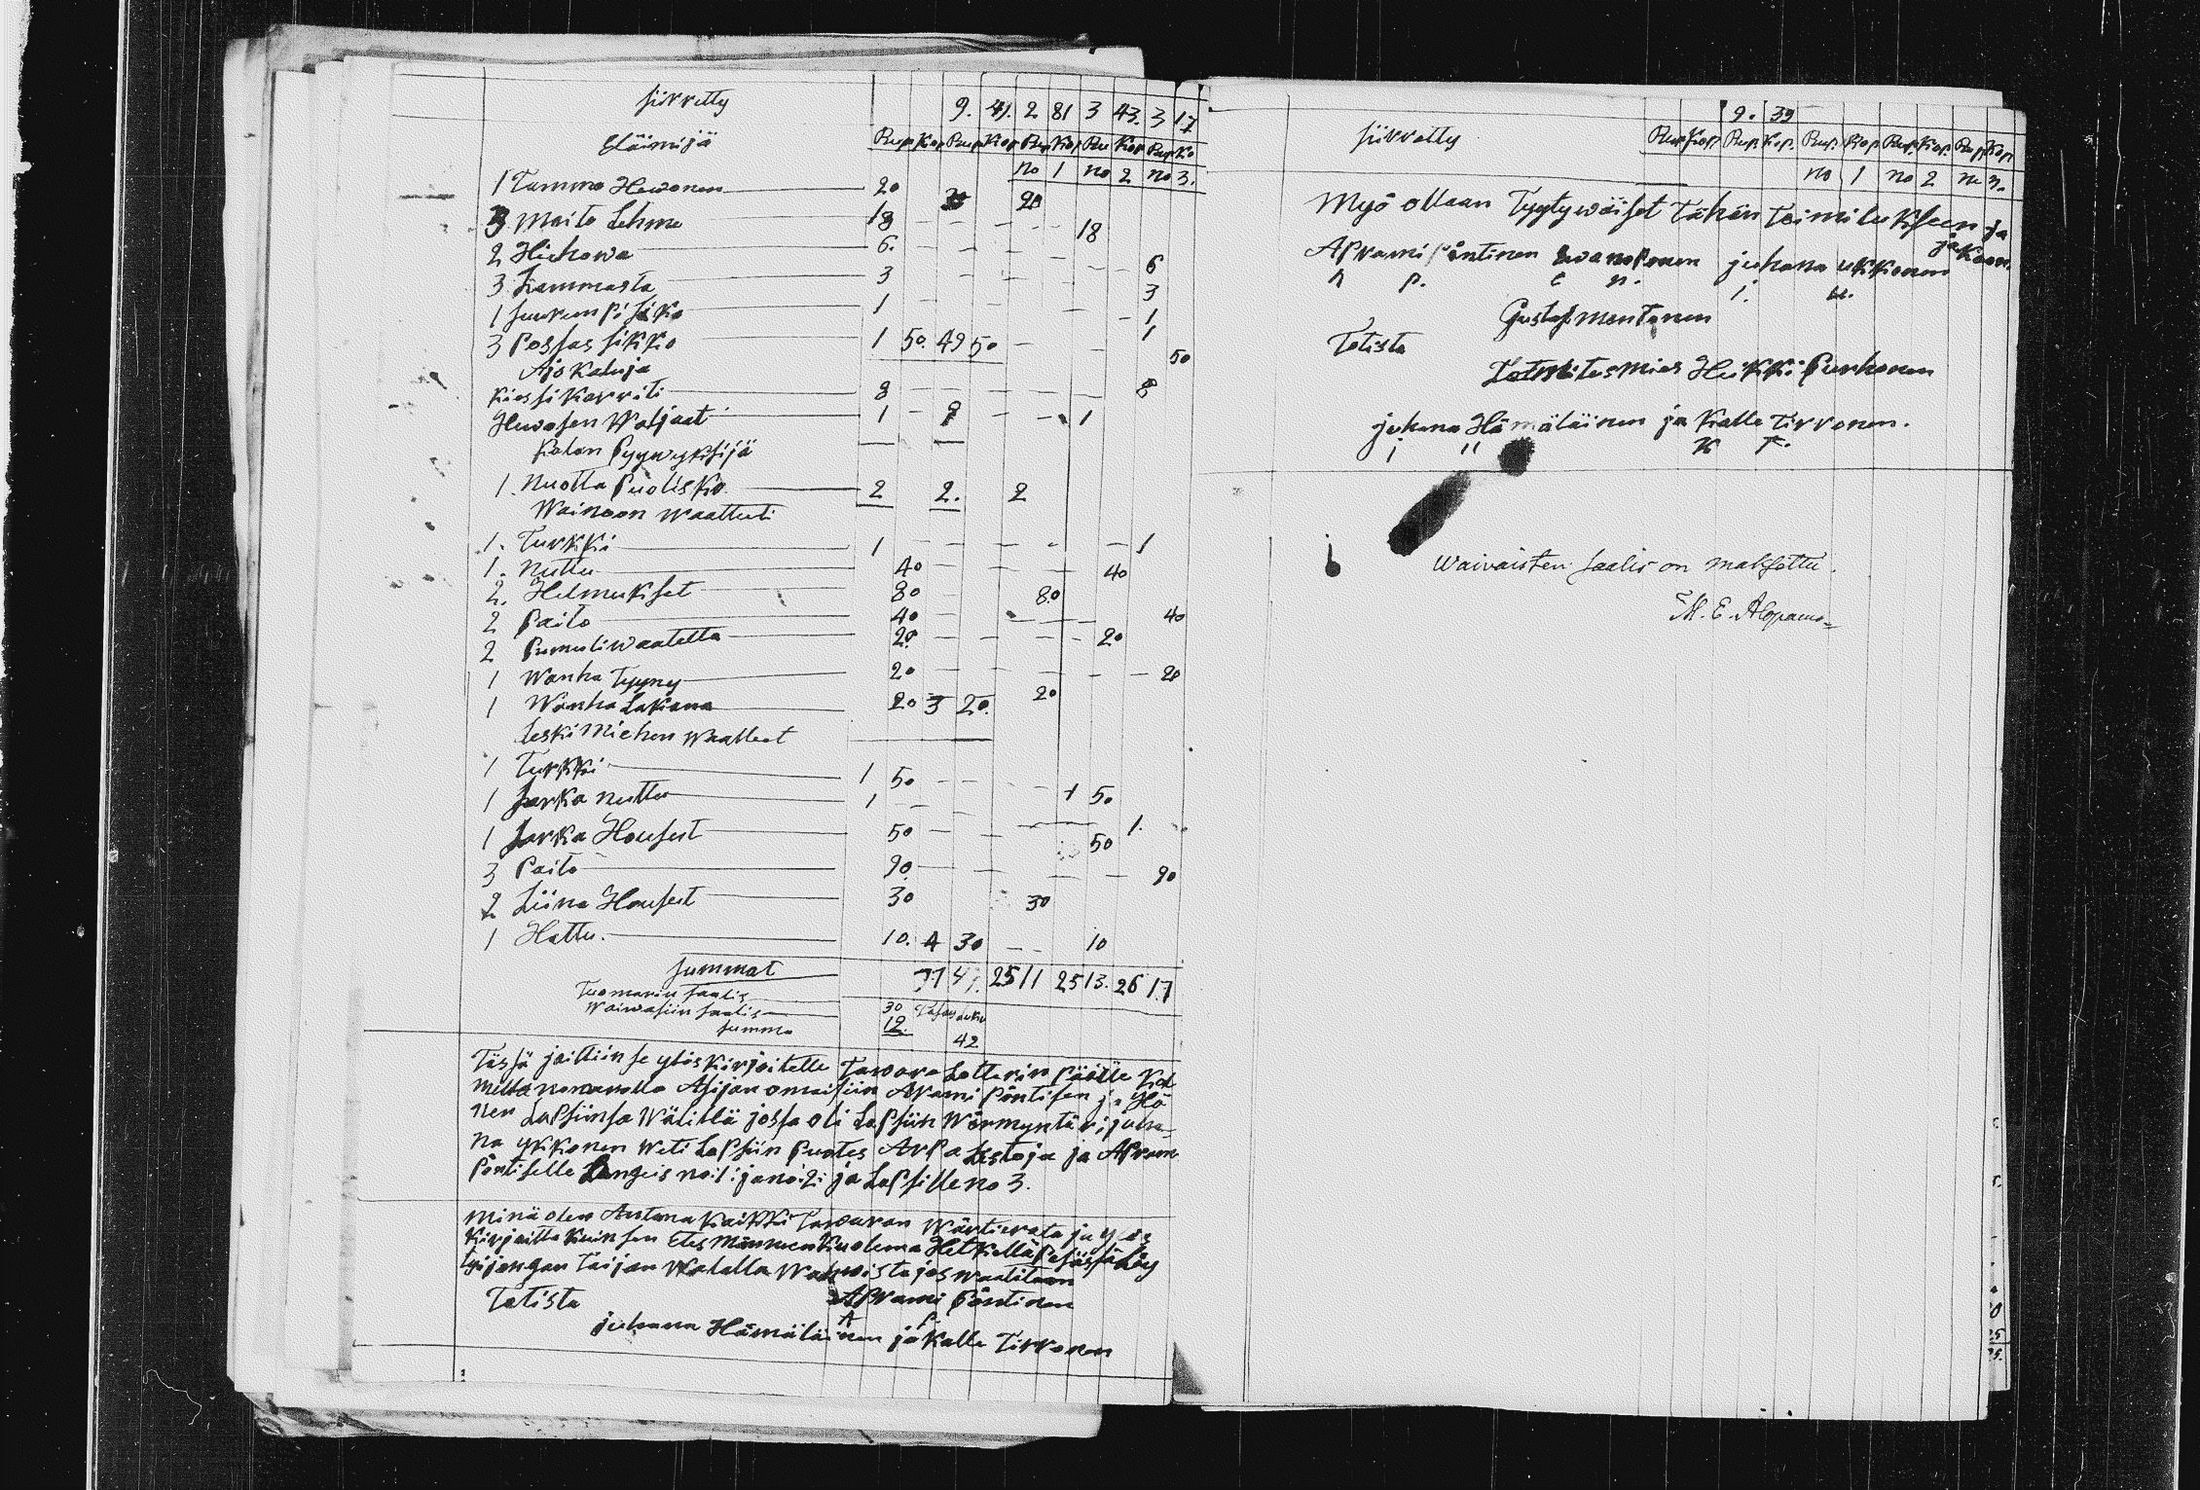 siirretty 9. 41. 2 81 3 43. 3 17
Eläimijä Rup Kop Rup Kop Rup Kop Ru Kop Rup Ko
no 1 no 2 no 3.
1 Tamma Hewonen 20 20
3 Maito Lehmä 18 18
2 Hiehowa 6. 6
3 Lammasta 3 3
1 1 1
3 Possas sikko 1 50 49 50 1 50
Ajo Kaluja
Kiessi Karriti 8 8
Hewosen Waljaat 1 9 1
Kalan Pyywyksijä
1. Nuotta Puolisko 2 2. 2
Waimon Waatteet
1. Turkki 1 1
1. Nuttu 40 40
2. Helmukset 80 80
2 Paito 40 40
2 Pumuliwaatetta 20. 20
1 Wanha Tyyny 20 20
1 Wanha Lakana 20 3 20. 20
Leski Miehen Waatteet
1 Turkki 1 50 1 50
1 Sarka nuttu 1 1.
1 Sarka Housut 50 50
3 Paito 90 90
2 Liina Housut 30 30
1 Hattu. 10. 4 30 10
Summat 77 41. 25 11 25 13. 26 17
Tuomarin saalis 30
Waiwasiin saalis 12.
summa 42
Tässä jaittiin se ylös kirjoitettu Tawara Lotterin Päälle Kol
mella Asijan omaisiin Aprami Pöntisen ja
nen Lapsiinsa Wälillä jossa oli Lapsiin Wörmyntäri juha
na ykkonen Weti Lapsiin Puoles Arpa Listoja ja Apram
Pöntiselle Langeis no:1: ja no:2: ja Lapsille no 3.
Minä olen Antana Kaikki Tawaran Wärtierata ja ylös
Kirjoitta Kuin sen Kuolema Hetkellä Pesässä Löy
Walalla jos waaditaan
Totista Aprami Pöntinen
A P.
juhana Hämäläinen ja Kalle Tirronen
siirretty 9. 39
Rup Kop. Rup. Kop. Rup. Kop Rup. Kop. Rup Kop.
no 1 no 2 no 3.
Myö ollaan Tyytywäiset Tähän Toimitukseen ja
jaKoon.
Aprami Pöntinen juhana ukkonen
A P. E n. I. u.
Gustaf
Totista
Lautamies Heikki Purhonen
juhana Hämäläinen ja Kalle Tirronen.
I H K T.
Waivaisten saalis on maksettu.